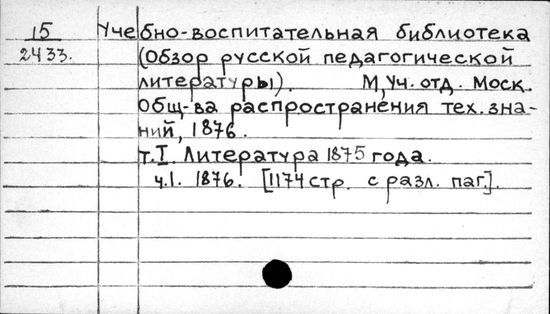 15 Учебно-воспитательная библиотека
2433. (Обзор русской педагогической
литературы). М, Уч. отд. Моск.
Общ-ва распространения тех. зна-
ний, 1876.
т.I. Литература 1875 года.
ч.1. 1876. [1174 стр. с разл. паг.].